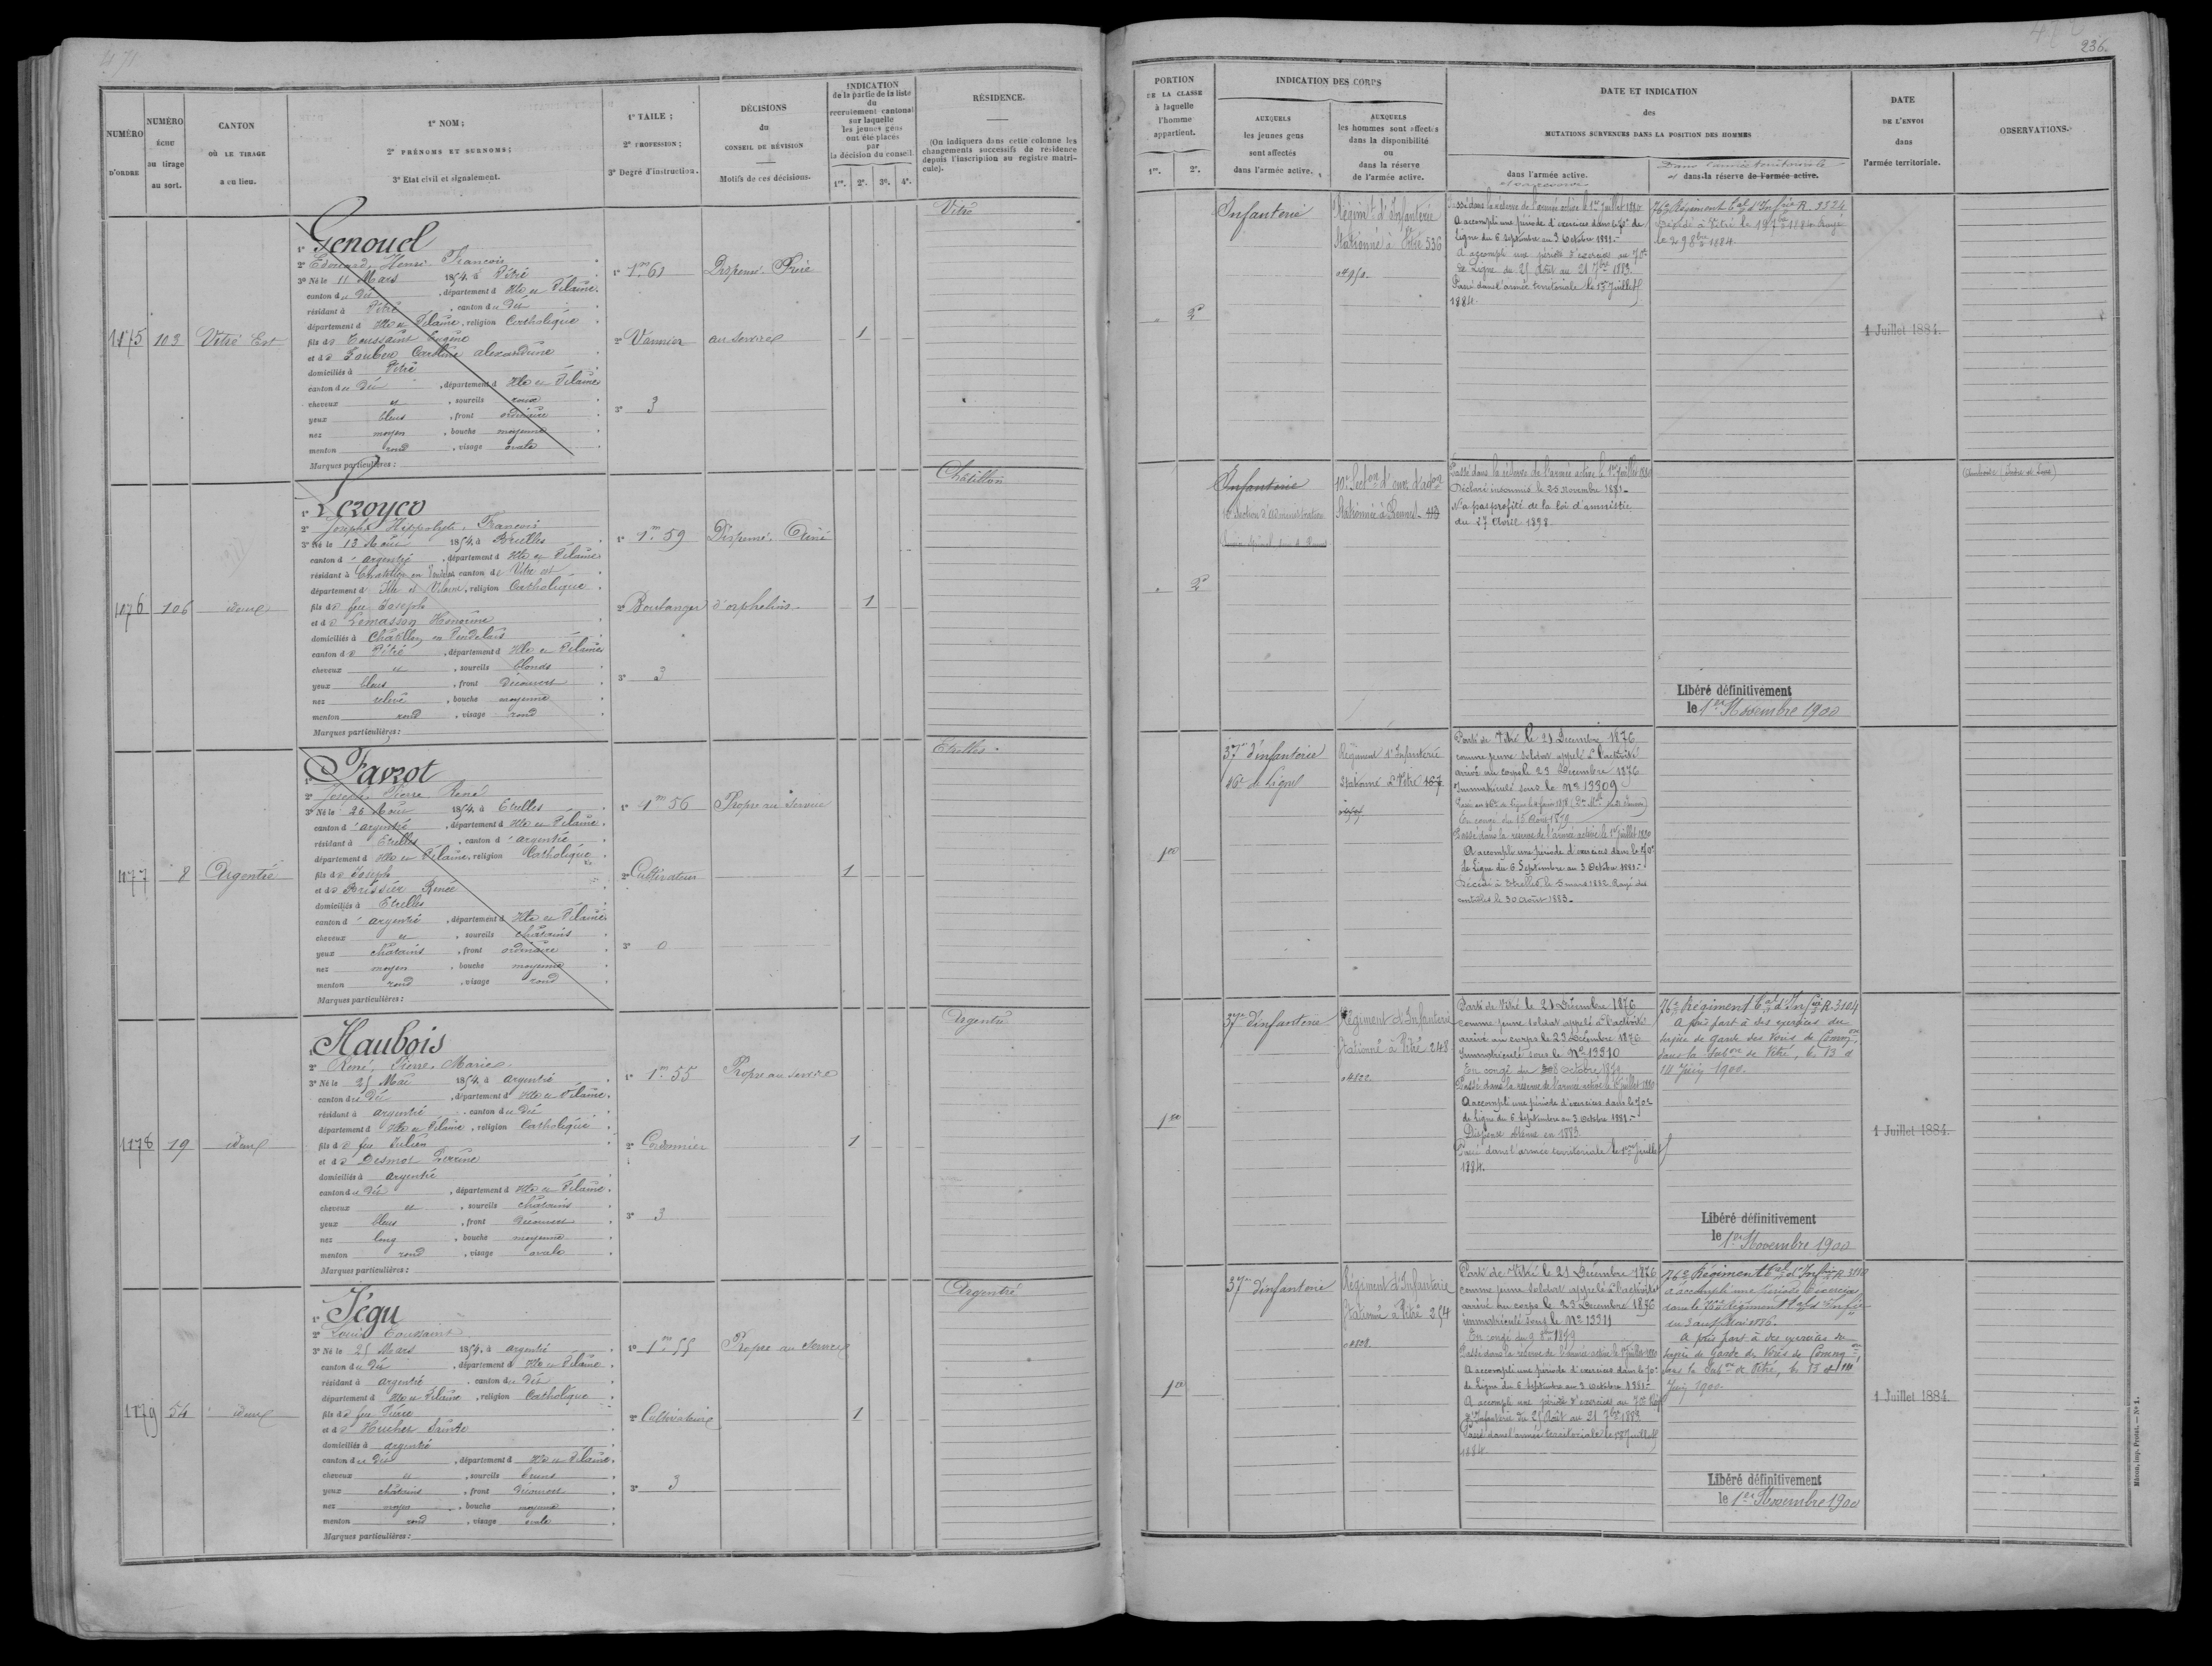 471
NUMÉRO
D'ORDRE
NUMÉRO
échu
au tirage
au sort.
CANTON
OÙ LE TIRAGE
a eu lieu.
1º NOM ;
2º PRÉNOMS ET SURNOMS ;
3º Etat civil et signalement.
1º TAILE ;
2º PROFESSION ;
3º Degré d'instruction.
DÉCISIONS
du
CONSEIL DE RÉVISION
Motifs de ces décisions.
INDICATION
de la partie de la liste
du
recrutement cantonal
sur laquelle
les jeunes gens
ont été placés
par
la décision du conseil
1re. 2e. 3e. 4e.
RÉSIDENCE.
(On indiquera dans cette colonne les
changements successifs de résidence
depuis l'inscription au registre matri-
cule).
1175 103 Vitré Est
1º Genouel
2º Edouard, Henri François
3º Né le 11 Mars 1854, à Vitré
canton du dit, département d Ille et Vilaine.
résidant à Vitré, canton du dit
département d Ille et Vilaine, religion Catholique
fils de Toussaint Eugène
et de Alexandrine
domiciliés à Vitré
canton du dit, département d Ille et Vilaine
cheveux et, sourcils roux
yeux bleus, front ordinaire
nez moyen, bouche moyenne
menton rond, visage ovale
Marques particulières :
1º 1m 61
2º Vannier
3º 3
Dispensé. Frère
au service
1
Vitré
1176 106 idem
1º Leroyer
2º Joseph Hippolyte, François
3º Né le 13 Août 1854, à Brielles
canton d'argentré, département d Ille et Vilaine
résidant à Chatillon en Vendelais, canton de Vitré est
département d'Ille et Vilaine, religion Catholique
fils de feu Joseph
et de Lemasson Honorine
domiciliés à Châtillon en Vendelais
canton de Vitré, département d Ille et Vilaine
cheveux et, sourcils blonds
yeux bleus, front découvert
nez relevé, bouche moyenne
menton rond, visage rond
Marques particulières :
1º 1m 59
2º Boulanger
3º 3
Dispensé. Aîné
d'orphelins
1
Châtillon
1177 8 Argentré
1º Favrot
2º Joseph Pierre René
3º Né le 26 Août 1854, à Etrelles
canton d'argentré, département d Ille et Vilaine
résidant à Etrelles, canton d'argentré
département d Ille et Vilaine, religion Catholique
fils de Joseph
et de Brissier Renée
domiciliés à Etrelles
canton d'argentré, département d Ille et Vilaine
cheveux et, sourcils châtains
yeux châtains, front ordinaire
nez moyen, bouche moyenne
menton rond, visage rond
Marques particulières :
1º 1m 56
2º Cultivateur
3º 0
Propre au service
1
Etrelles
1178 19 idem
1º Haubois
2º René, Pierre, Marie
3º Né le 25 Mai 1854, à argentré
canton du dit, département d Ille et Vilaine
résidant à argentré, canton du dit
département d Ille et Vilaine, religion Catholique
fils de feu Julien
et de Desmot Perrine
domiciliés à argentré
canton du dit, département d Ille et Vilaine
cheveux et, sourcils châtains
yeux bleus, front découvert
nez long, bouche moyenne
menton rond, visage ovale
Marques particulières :
1º 1m 55
2º Cordonnier
3º 3
Propre au service
1
Argentré
1179 54 idem
1º Jégu
2º Louis Toussaint
3º Né le 25 Mars 1854, à argentré
canton du dit, département d Ille et Vilaine
résidant à argentré, canton du dit
département d Ille et Vilaine, religion Catholique
fils de feu Pierre
et de Hucher Sainte
domiciliés à argentré
canton du dit, département d Ille et Vilaine
cheveux et, sourcils bruns
yeux châtains, front découvert
nez moyen, bouche moyenne
menton rond, visage ovale
Marques particulières :
1º 1m 55
2º Cultivateur
3º 3
Propre au service
1
Argentré
236.
PORTION
DE LA CLASSE
à laquelle
l'homme
appartient.
1re. 2e.
INDICATION DES CORPS
AUXQUELS
les jeunes gens
sont affectés
dans l'armée active.
AUXQUELS
les hommes sont affectés
dans la disponibilité
ou
dans la réserve
de l'armée active.
DATE ET INDICATION
des
MUTATIONS SURVENUES DANS LA POSITION DES HOMMES
dans l'armée active.
et en réserve
Dans l'armée territoriale
et dans la réserve de l'armée active.
DATE
DE L'ENVOI
dans
l'armée territoriale.
OBSERVATIONS.
2e
Infanterie
Régiment d'Infanterie
Stationné à Vitré 536
Passé dans la réserve de l'armée active le 1er Juillet 1880
A accompli une période d'exercices dans le 70e de
Ligne du 6 Septembre au 3 Octobre 1881.
A accompli une période d'exercices au 70e
de Ligne du 25 Août au 21 7bre 1883.
Passé dans l'armée territoriale le 1er Juillet
1884.
76e Régiment tal d'Infrie R. 3324
Décédé à Vitré le 19 1884 Rayé
le 29 8bre 1884.
1 Juillet 1884.
2e
Infanterie
10e Section d'administration
10e Section d'ouv. d'adon
Stationnée à Rennes
Passé dans la réserve de l'armée active le 1er Juillet 1880
Déclaré insoumis le 25 novembre 1881
N'a pas profité de la loi d'amnistie
du 27 Avril 1898
Libéré définitivement
le 1er Novembre 1900
Amboise (Indre et Loire)
1re
37e d'infanterie
46e de Ligne
Régiment d'Infanterie
Stationné à Vitré 167
Parti de Vitré le 21 Décembre 1876
comme jeune soldat appelé à l'activité
arrivé au corps le 23 Décembre 1876
Immatriculé sous le Nº 13309
En congé du 15 Août 1879
Passé dans la réserve de l'armée active le 1er Juillet 1880
A accompli une période d'exercices dans le 70e
de Ligne du 6 Septembre au 3 Octobre 1881.
Décédé à Etrelles le 5 mars 1882. Rayé des
contrôles le 30 août 1883.
1re
37e d'infanterie
Régiment d'Infanterie
Stationné à Vitré 248
04122
Parti de Vitré le 21 Décembre 1876
comme jeune soldat appelé à l'activité
arrivé au corps le 23 Décembre 1876
Immatriculé sous le Nº 13310
En congé du 8 octobre 1879
Passé dans la réserve de l'armée active le 1er Juillet 1880
A accompli une période d'exercices dans le 70e
de Ligne du 6 Septembre au 3 Octobre 1881.
Dispense obtenue en 1883
Passé dans l'armée territoriale le 1er Juillet
1884.
76e Régiment tal d'Infrie R 3104
A pris part à des exercices du
service de garde des Voies de Common
dans la Subon de Vitré, le 13 et
14 Juin 1900.
Libéré définitivement
le 1er Novembre 1900
1 Juillet 1884.
1re
37e d'infanterie
Régiment d'Infanterie
Stationné à Vitré 254
Parti de Vitré le 21 Décembre 1876
comme jeune soldat appelé à l'activité
arrivé au corps le 23 Décembre 1876
immatriculé sous le Nº 13311
En congé du 9 8bre 1879
Passé dans la réserve de l'armée active le 1er Juillet 1880
A accompli une période d'exercices dans le 70e
de Ligne du 6 Septembre au 3 Octobre 1881.
A accompli une période d'exercices au 70e Rég
d'Infanterie du 25 Août au 21 7bre 1883
Passé dans l'armée territoriale le 1er Juillet
1884.
76e Régiment tal d'Infrie R 3110
a accompli une période d'exercices
dans le 76e Régiment tal d'Infrie
Mai 1886.
A pris part à des exercices du
service de Garde des Voies de Common
dans la Subon de Vitré, le 13 et 14
Juin 1900.
Libéré définitivement
le 1er Novembre 1900
1 Juillet 1884
Mâcon, imp. Protat. — Nº 1.